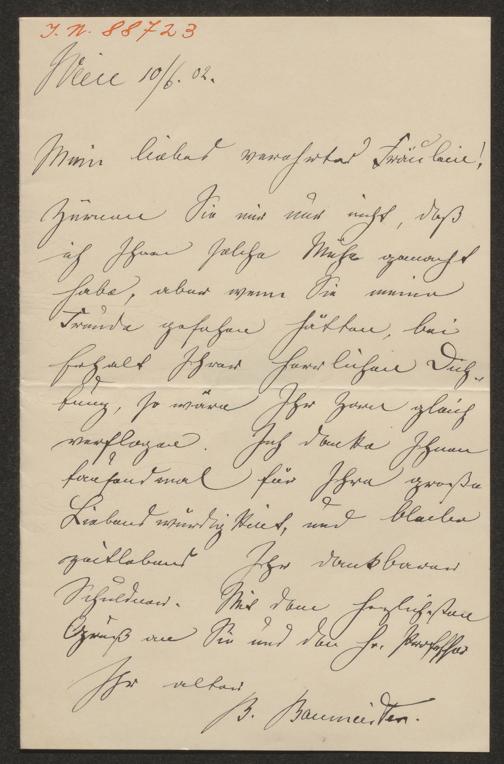 I. N. 88723
Wien 10/6. 02.
Mein liebes verehrtes Fräulein!
Zürnen Sie mir nur nicht, daß
ich Ihnen solche Mühe gemacht
habe, aber wenn Sie meine
Freude gesehen hätten, bei
Erhalt Ihrer herrlichen Dich-
tung, so wäre Ihr Zorn gleich
verflogen. Ich danke Ihnen
tausendmal für Ihre große
Liebenswürdigkeit, und bleibe
zeitlebens Ihr dankbarer
Schuldner. Mit dem herzlichsten
Gruß an Sie und den Hr. Professor
Ihr alter
B. Baumeister.